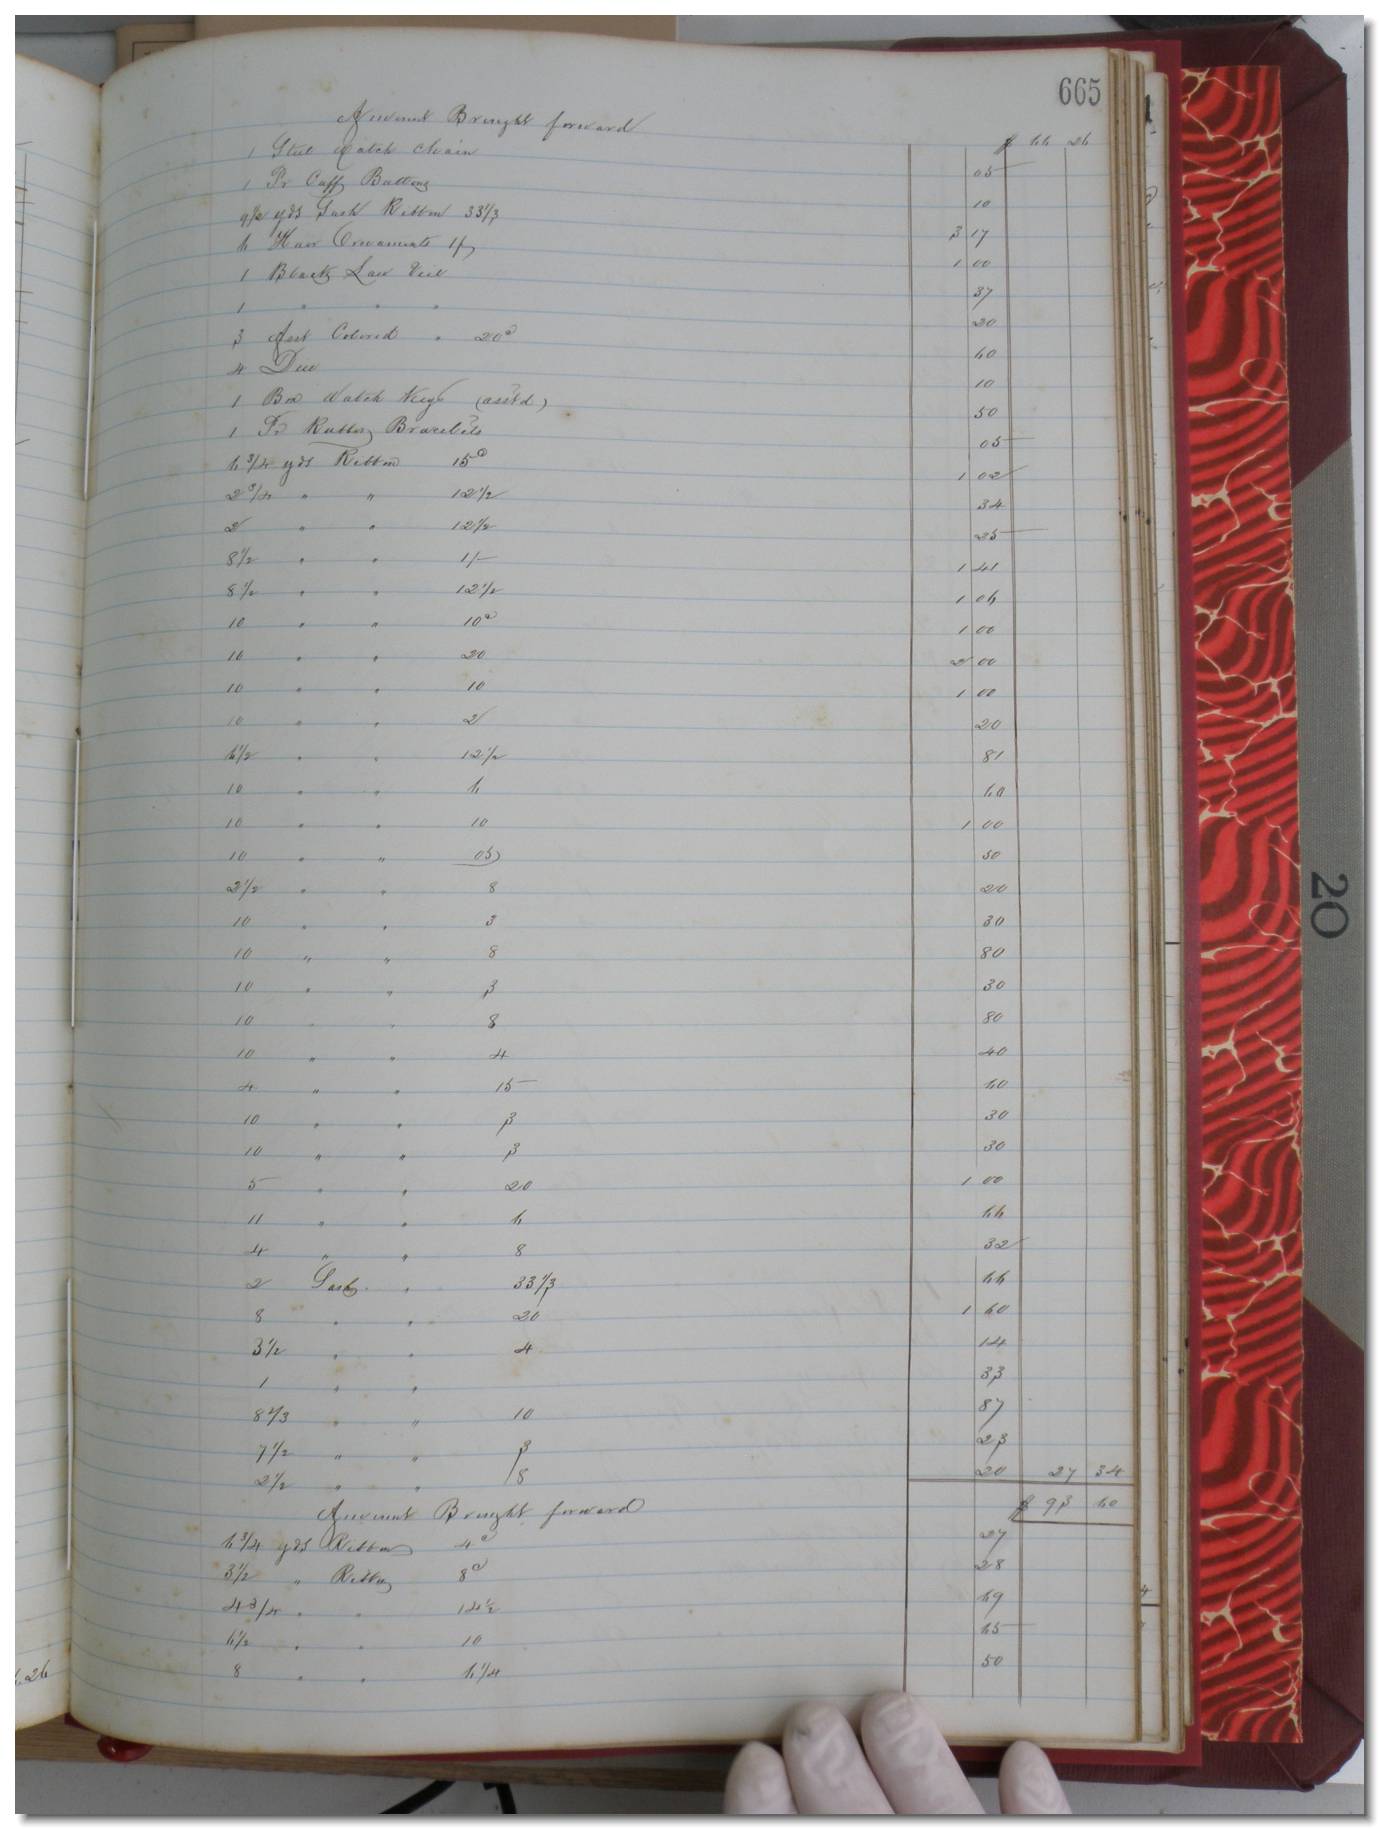 665
Amount Brought forward $ 66 26
1 Steel Watch Chain 05
1 Pr Cuff Buttons 10
9 1/2 yds Sash Ribbon 33 1/3 3 17
6 Hair Ornaments 1/ 1 00
1 Black Lace Veil 37
1 " " " 20
3 Asst Colored " 20c 60
4 10
1 Box Watch Keys (asst'd) 50
1 Pr Rubber Bracelets 05
6 3/4 yds Ribbon 15c 1 02
2 3/4 " " 12 1/2 34
2 " " 12 1/2 25
8 1/2 " " 1/- 1 41
8 1/2 " " 12 1/2 1 06
10 " " 10c 1 00
10 " " 20 2 00
10 " " 10 1 00
10 " " 2 20
6 1/2 " " 12 1/2 81
10 " " 6 60
10 " " 10 1 00
10 " " 05 50
2 1/2 " " 8 20
10 " " 3 30
10 " " 8 80
10 " " 3 30
10 " " 8 80
10 " " 4 40
4 " " 15 60
10 " " 3 30
10 " " 3 30
5 " " 20 1 00
11 " " 6 66
4 " " 8 32
2 Sash " 33 1/3 66
8 " " 20 1 60
3 1/2 " " 4 14
1 " " 33
8 2/3 " " 10 87
7 1/2 " " 3 23
2 1/2 " " 8 20 27 34
Amount Brought forward $ 93 60
6 3/4 yds Ribbon 4c 27
3 1/2 " Ribbon 8c 28
4 3/4 " " 14 1/2 69
6 1/2 " " 10 65
8 " " 6 1/4 50
26
20